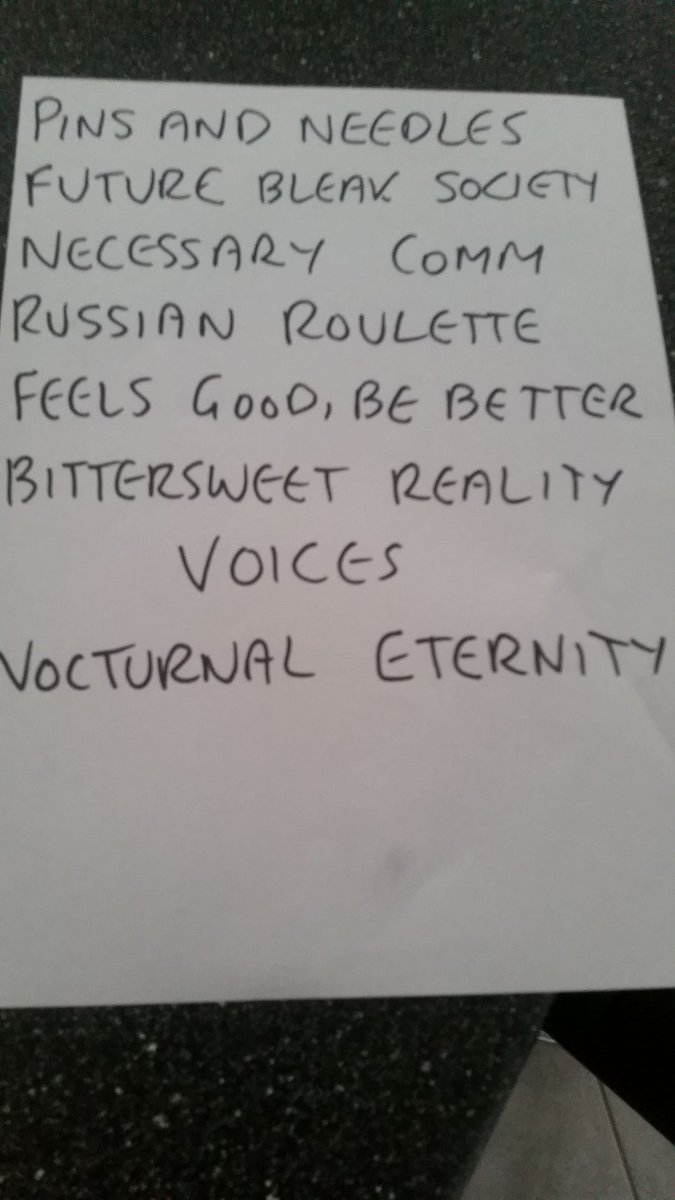 PINS AND NEEDLES
FUTURE BLEAK SOCIETY
NECESSARY COMM
RUSSIAN ROULETTE
FEELS GOOD, BE BETTER
BITTERSWEET REALITY
VOICES
NOCTURNAL ETERNITY